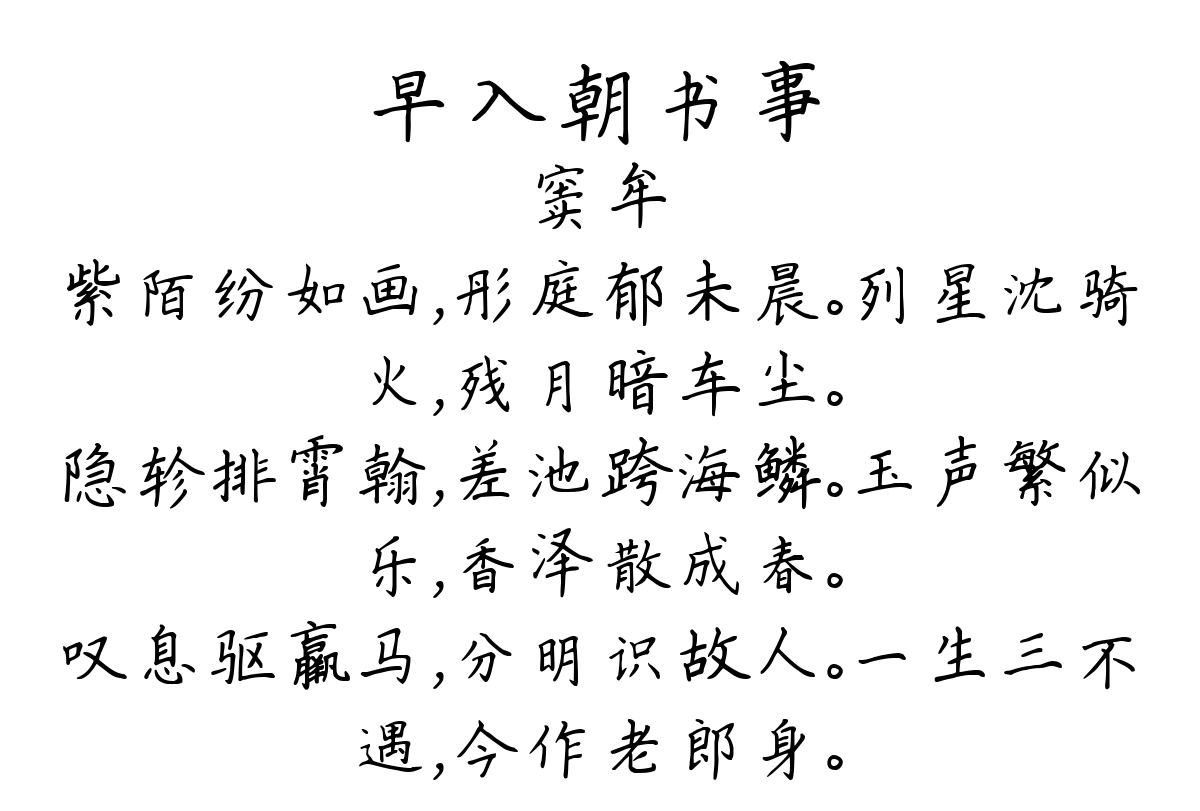 早入朝书事
窦牟
紫陌纷如画,彤庭郁未晨。列星沈骑
火,残月暗车尘。
隐轸排霄翰,差池跨海鳞。玉声繁似
乐,香泽散成春。
叹息驱羸马,分明识故人。一生三不
遇,今作老郎身。